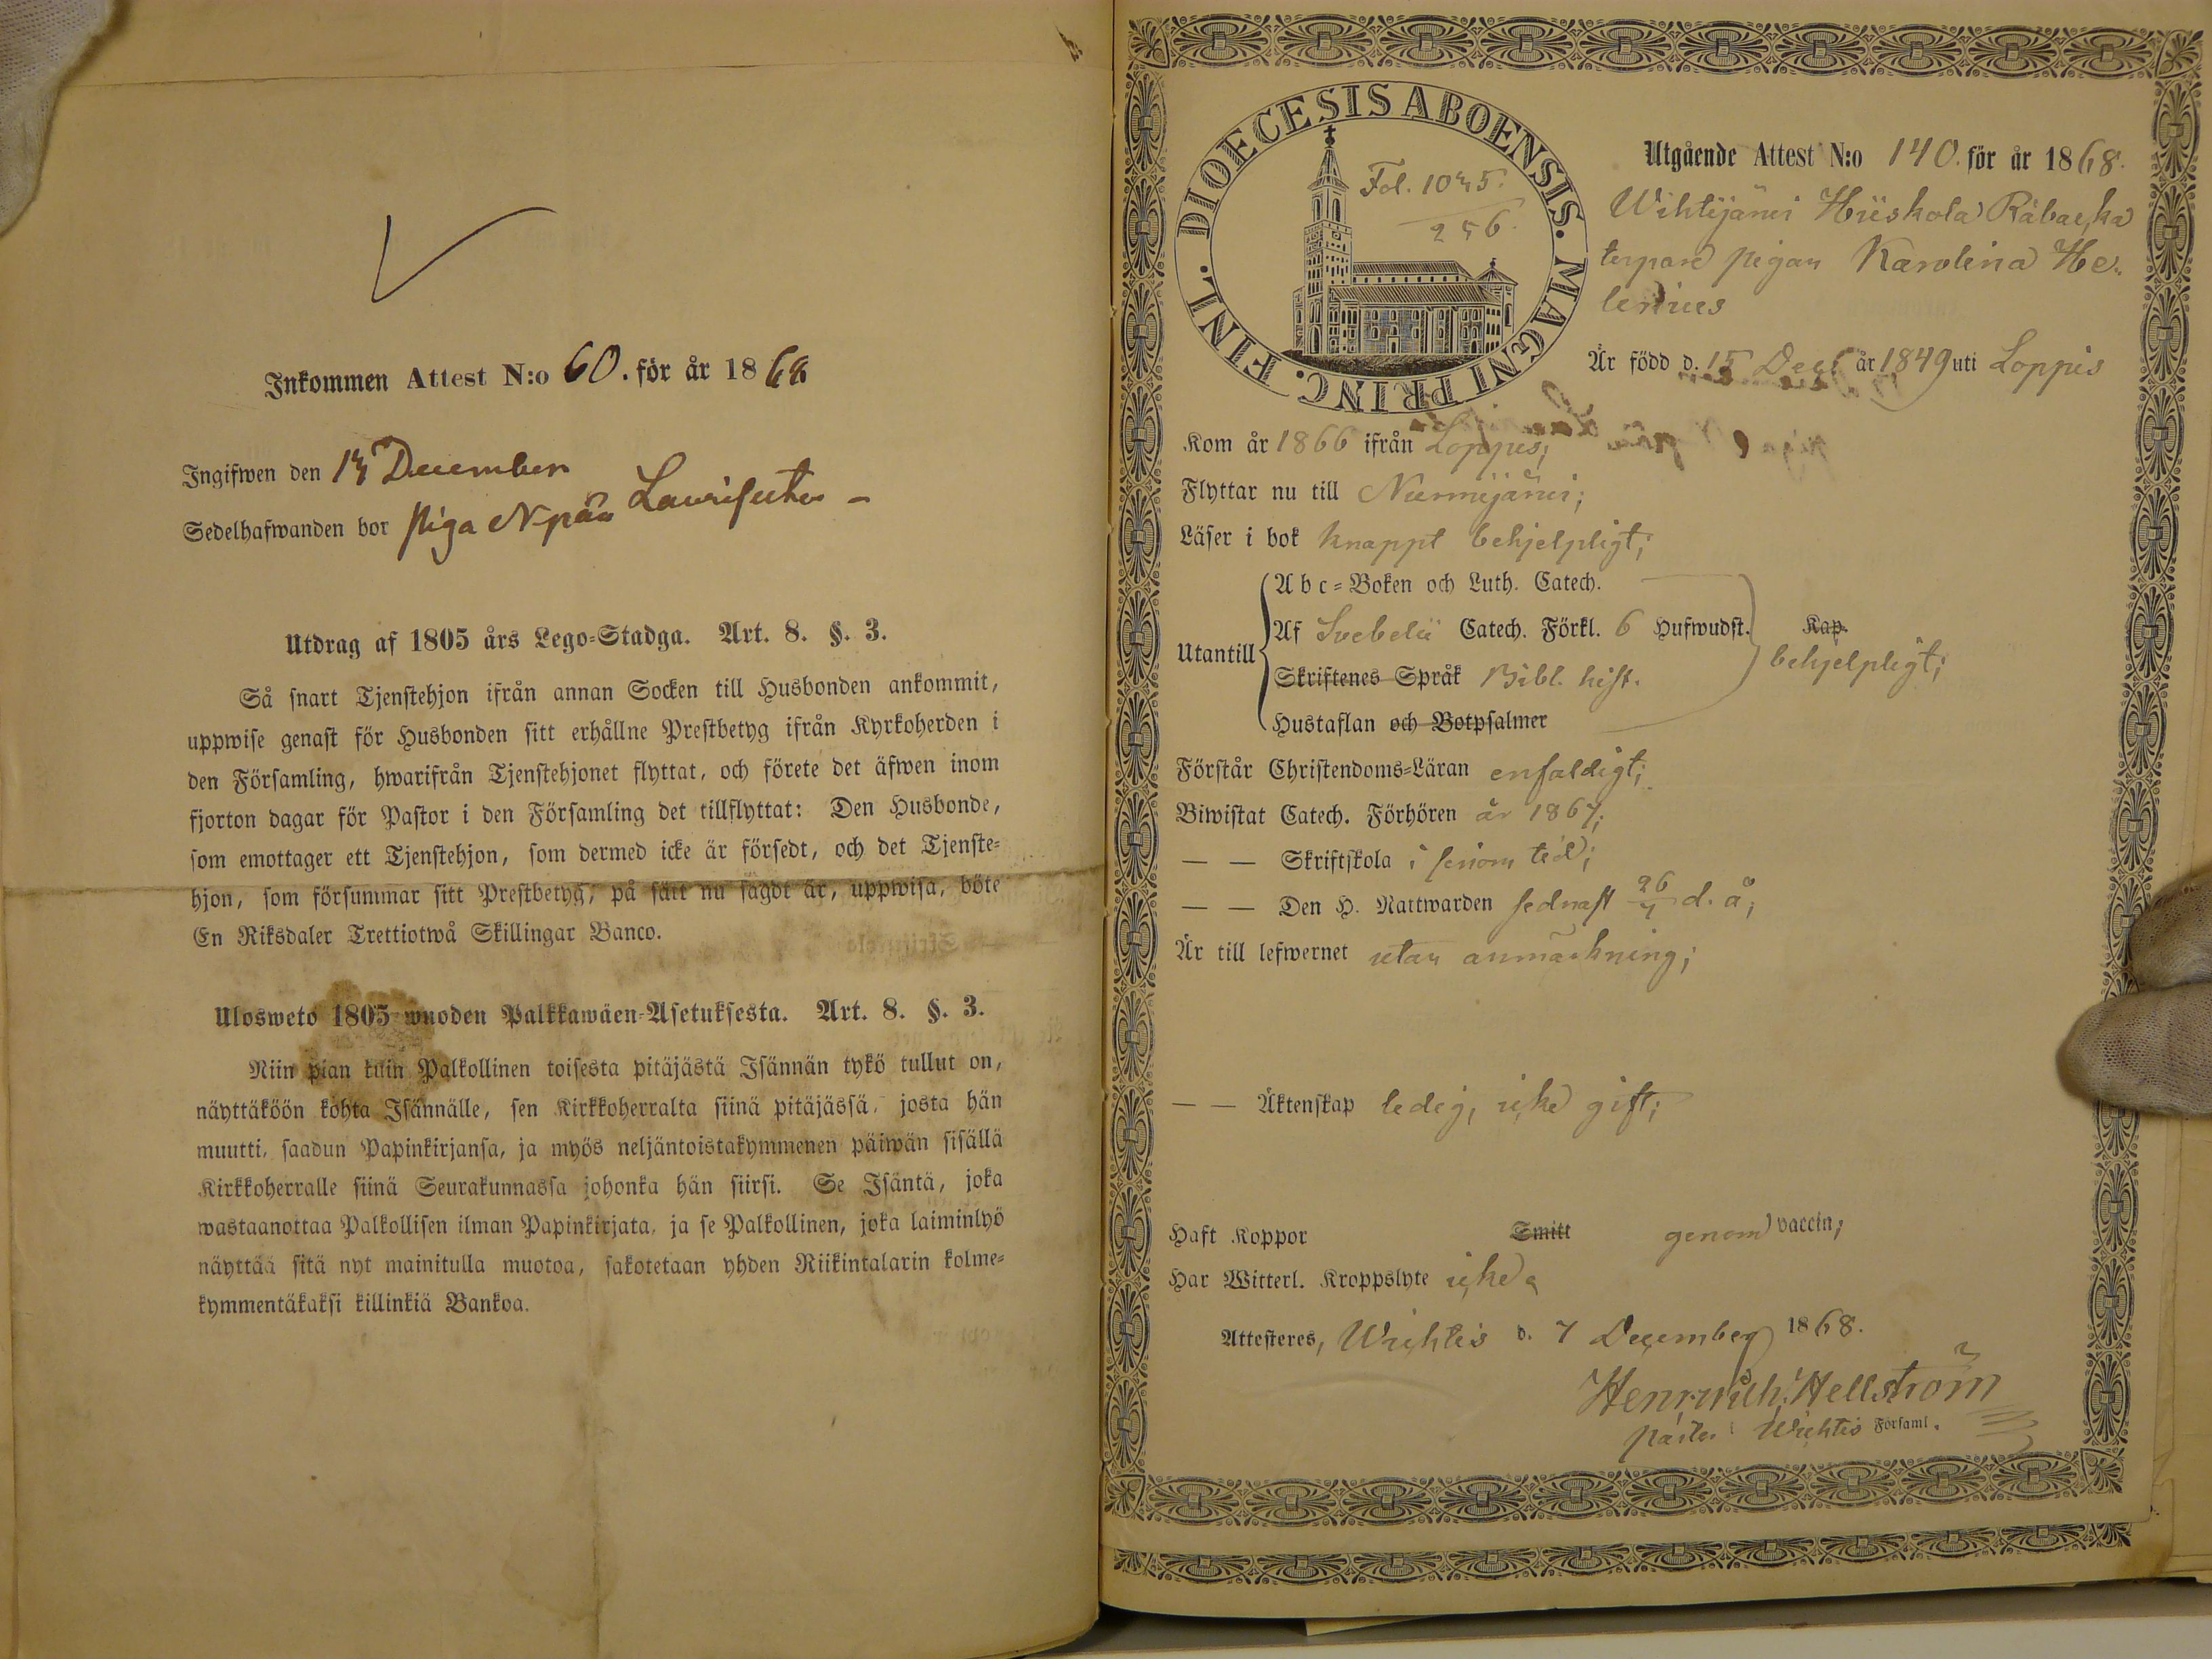 Inkommen Attest N:o 60. för år 1868
Ingifwen den 14 December
Sedelhafwanden bor piga Npää
Utdrag af 1805 års Lego-Stadga. Art. 8. §. 3.
Så snart Tjenstehjon ifrån annan Socken till Husbonden ankommit,
uppwise genast för Husbonden sitt erhållne Prestbetyg ifrån Kyrkoherden i
den Församling, hwarifrån Tjenstehjonet flyttat, och förete det äfwen inom
fjorton dagar för Pastor i den Församling det tillflyttat: Den Husbonde,
som emottager ett Tjenstehjon, som dermed icke är försedt, och det Tjenste-
hjon, som försummar sitt Prestbetyg, på sätt nu sagdt är, uppwisa, böte
En Riksdaler Trettiotwå Skillingar Banco.
Ulosweto 1805 wuoden Palkkawäen-Asetuksesta. Art. 8. §. 3.
Niin pian kuin Palkollinen toisesta pitäjästä Isännän tykö tullut on,
näyttäköön kohta Isännälle, sen Kirkkoherralta siinä pitäjässä, josta hän
muutti, saadun Papinkirjansa, ja myös neljäntoistakymmenen päiwän sisällä
Kirkkoherralle siinä Seurakunnassa johonka hän siirsi. Se Isäntä, joka
wastaanottaa Palkollisen ilman Papinkirjata, ja se Palkollinen, joka laiminlyö
näyttää sitä nyt mainitulla muotoa, sakotetaan yhden Riikintalarin kolme-
kymmentäkaksi killinkiä Bankoa.
DIOECESIS ABOENSIS. MAGNI PRINC. FINL.
Fol. 1045.
256.
Utgående Attest N:o 140. för år 1868.
Wihtijärvi Hiiskola Råbacka
torpare pigan Karolina He-
lenius
Är född d. 15 Dec. år 1849 uti Loppis
Kom år 1866 ifrån Loppis;
Flyttar nu till Nurmijärvi;
Läser i bok knappt behjelpligt;
Utantill
Abc-Boken och Luth. Catech.
Af Svebelii Catech. Förkl. 6 Hufwudst. Kap.
behjelpligt;
Skriftenes Språk Bibl. hist.
Hustaflan och Botpsalmer
Förstår Christendoms-Läran enfaldigt;
Biwistat Catech. Förhören år 1867;
— — Skriftskola i sinom tid;
— — Den H. Nattwarden sednast 26/4 d. å;
Är till lefwernet utan anmärkning;
— — Äktenskap ledig, icke gift;
Haft Koppor Smitt genom vaccin;
Har Witterl. Kroppslyte icke.
Attesteres, Wichtis d. 7 December 1868.
Henrik Hellström
pastor i Wichtis Församl.